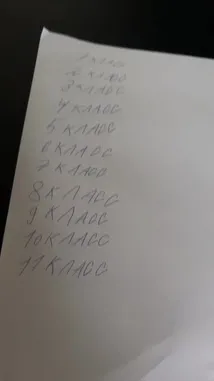 1 КЛАСС
2 КЛАСС
3 КЛАСС
4 КЛАСС
5 КЛАСС
6 КЛАСС
7 КЛАСС
8 КЛАСС
9 КЛАСС
10 КЛАСС
11 КЛАСС